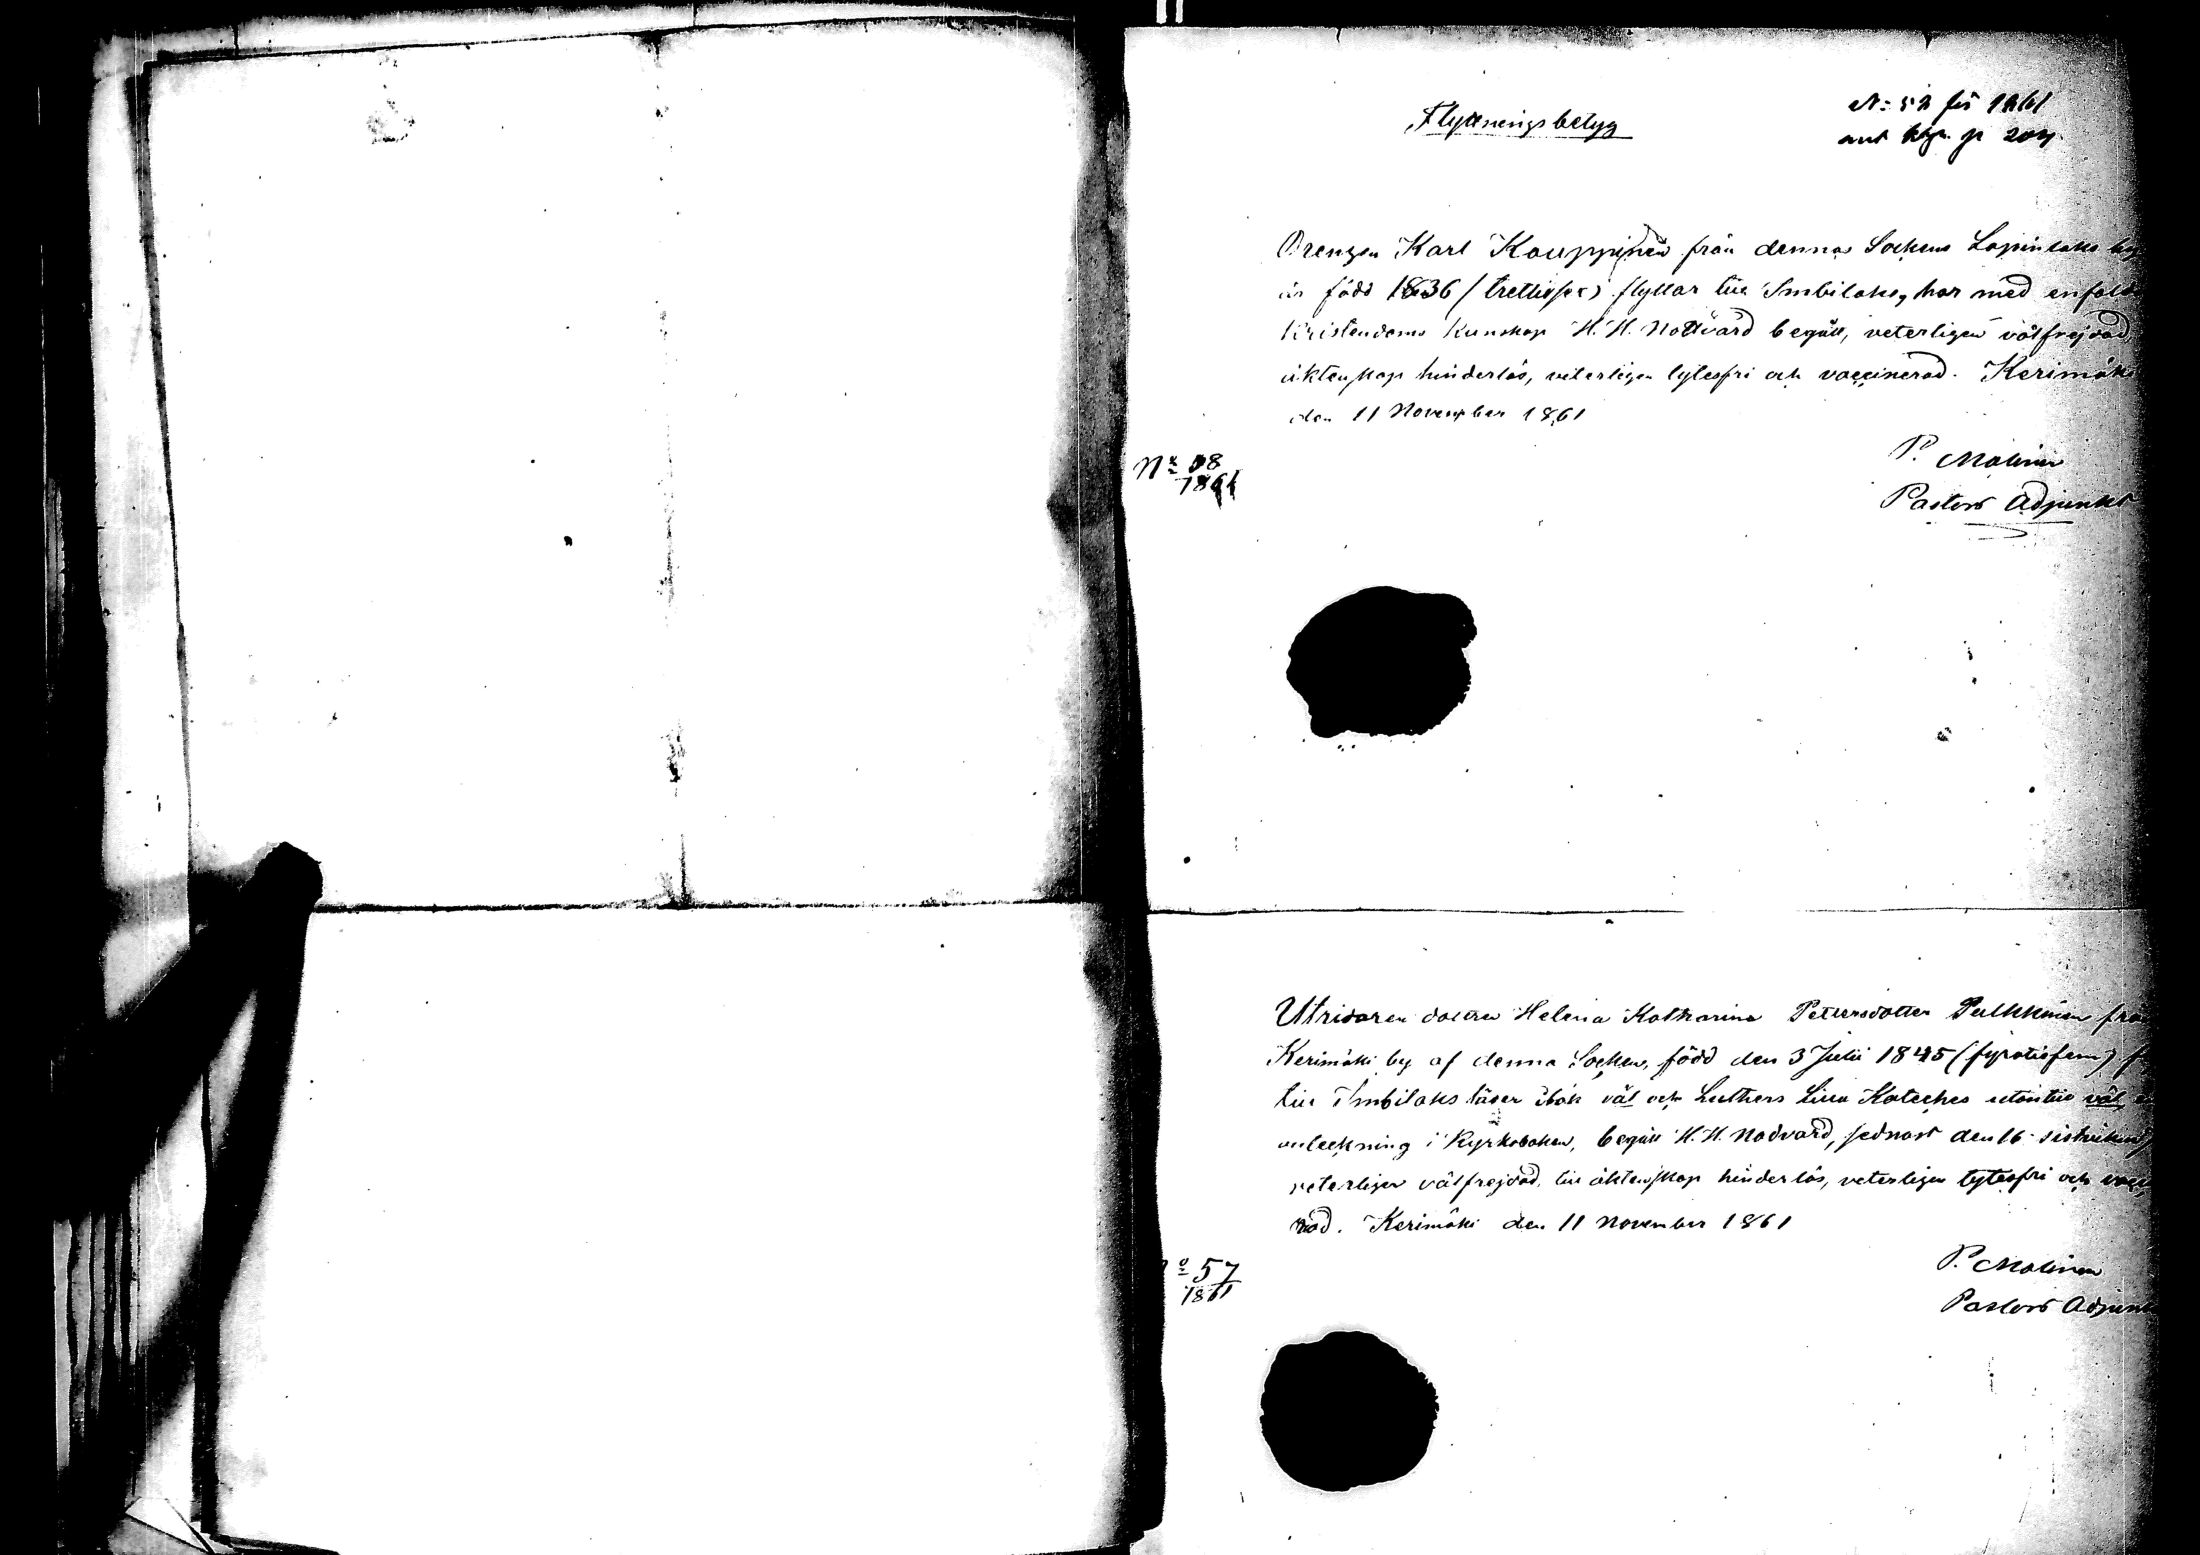 Flyttningsbetyg
N: 52 för 1861
ant kbn p 204
Drengen Karl Kouppinen från denna Sockens Lapinlaks by
är född 1836 (trettiosex) flyttar till Imbilaks, har med enfald
Kristendoms kunskap H. H. Nattvard begått, veterligen välfrejdad,
äktenskap hinderlös, veterligen lytesfri och vaccinerad. Kerimäki
den 11 November 1861
P. Malinen
Pastors Adjunkt
No 58
1861
Utridaren dottren Helena Katharina Pettersdotter Pulkkinen från
Kerimäki by af denna Socken, född den 3 Julii 1845 (fyratiofem)
till Imbilaks läser i bok väl och Luthers Lilla Kateches utantill väl,
anteckning i Kyrkoboken, begått H. H. Nadvard, sednast den 16
veterligen välfrejdad, till äktenskap hinderlös, veterligen lytesfri och vacci
rad. Kerimäki den 11 November 1861
P. Malinen
Pastors Adjunk
o 57
1861